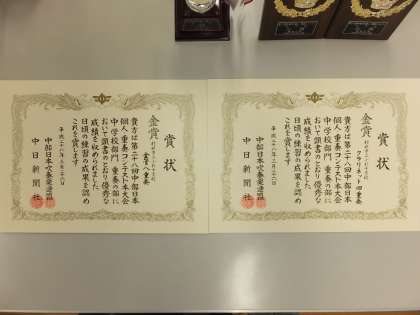 賞状
金賞
クラリネット四重奏
貴方は第二十八回中部日本
個人・重奏コンテスト本大会
中学校部門 重奏の部に
おいて頭書のとおり優秀な
成績を収められました
日頃の練習の成果を認め
これを賞します
平成二十八年三月二十六日
中部日本吹奏楽連盟
中日新聞社
賞状
金賞
管打八重奏
貴方は第二十八回中部日本
個人・重奏コンテスト本大会
中学校部門 重奏の部に
おいて頭書のとおり優秀な
成績を収められました
日頃の練習の成果を認め
これを賞します
平成二十八年三月二十六日
中部日本吹奏楽連盟
中日新聞社